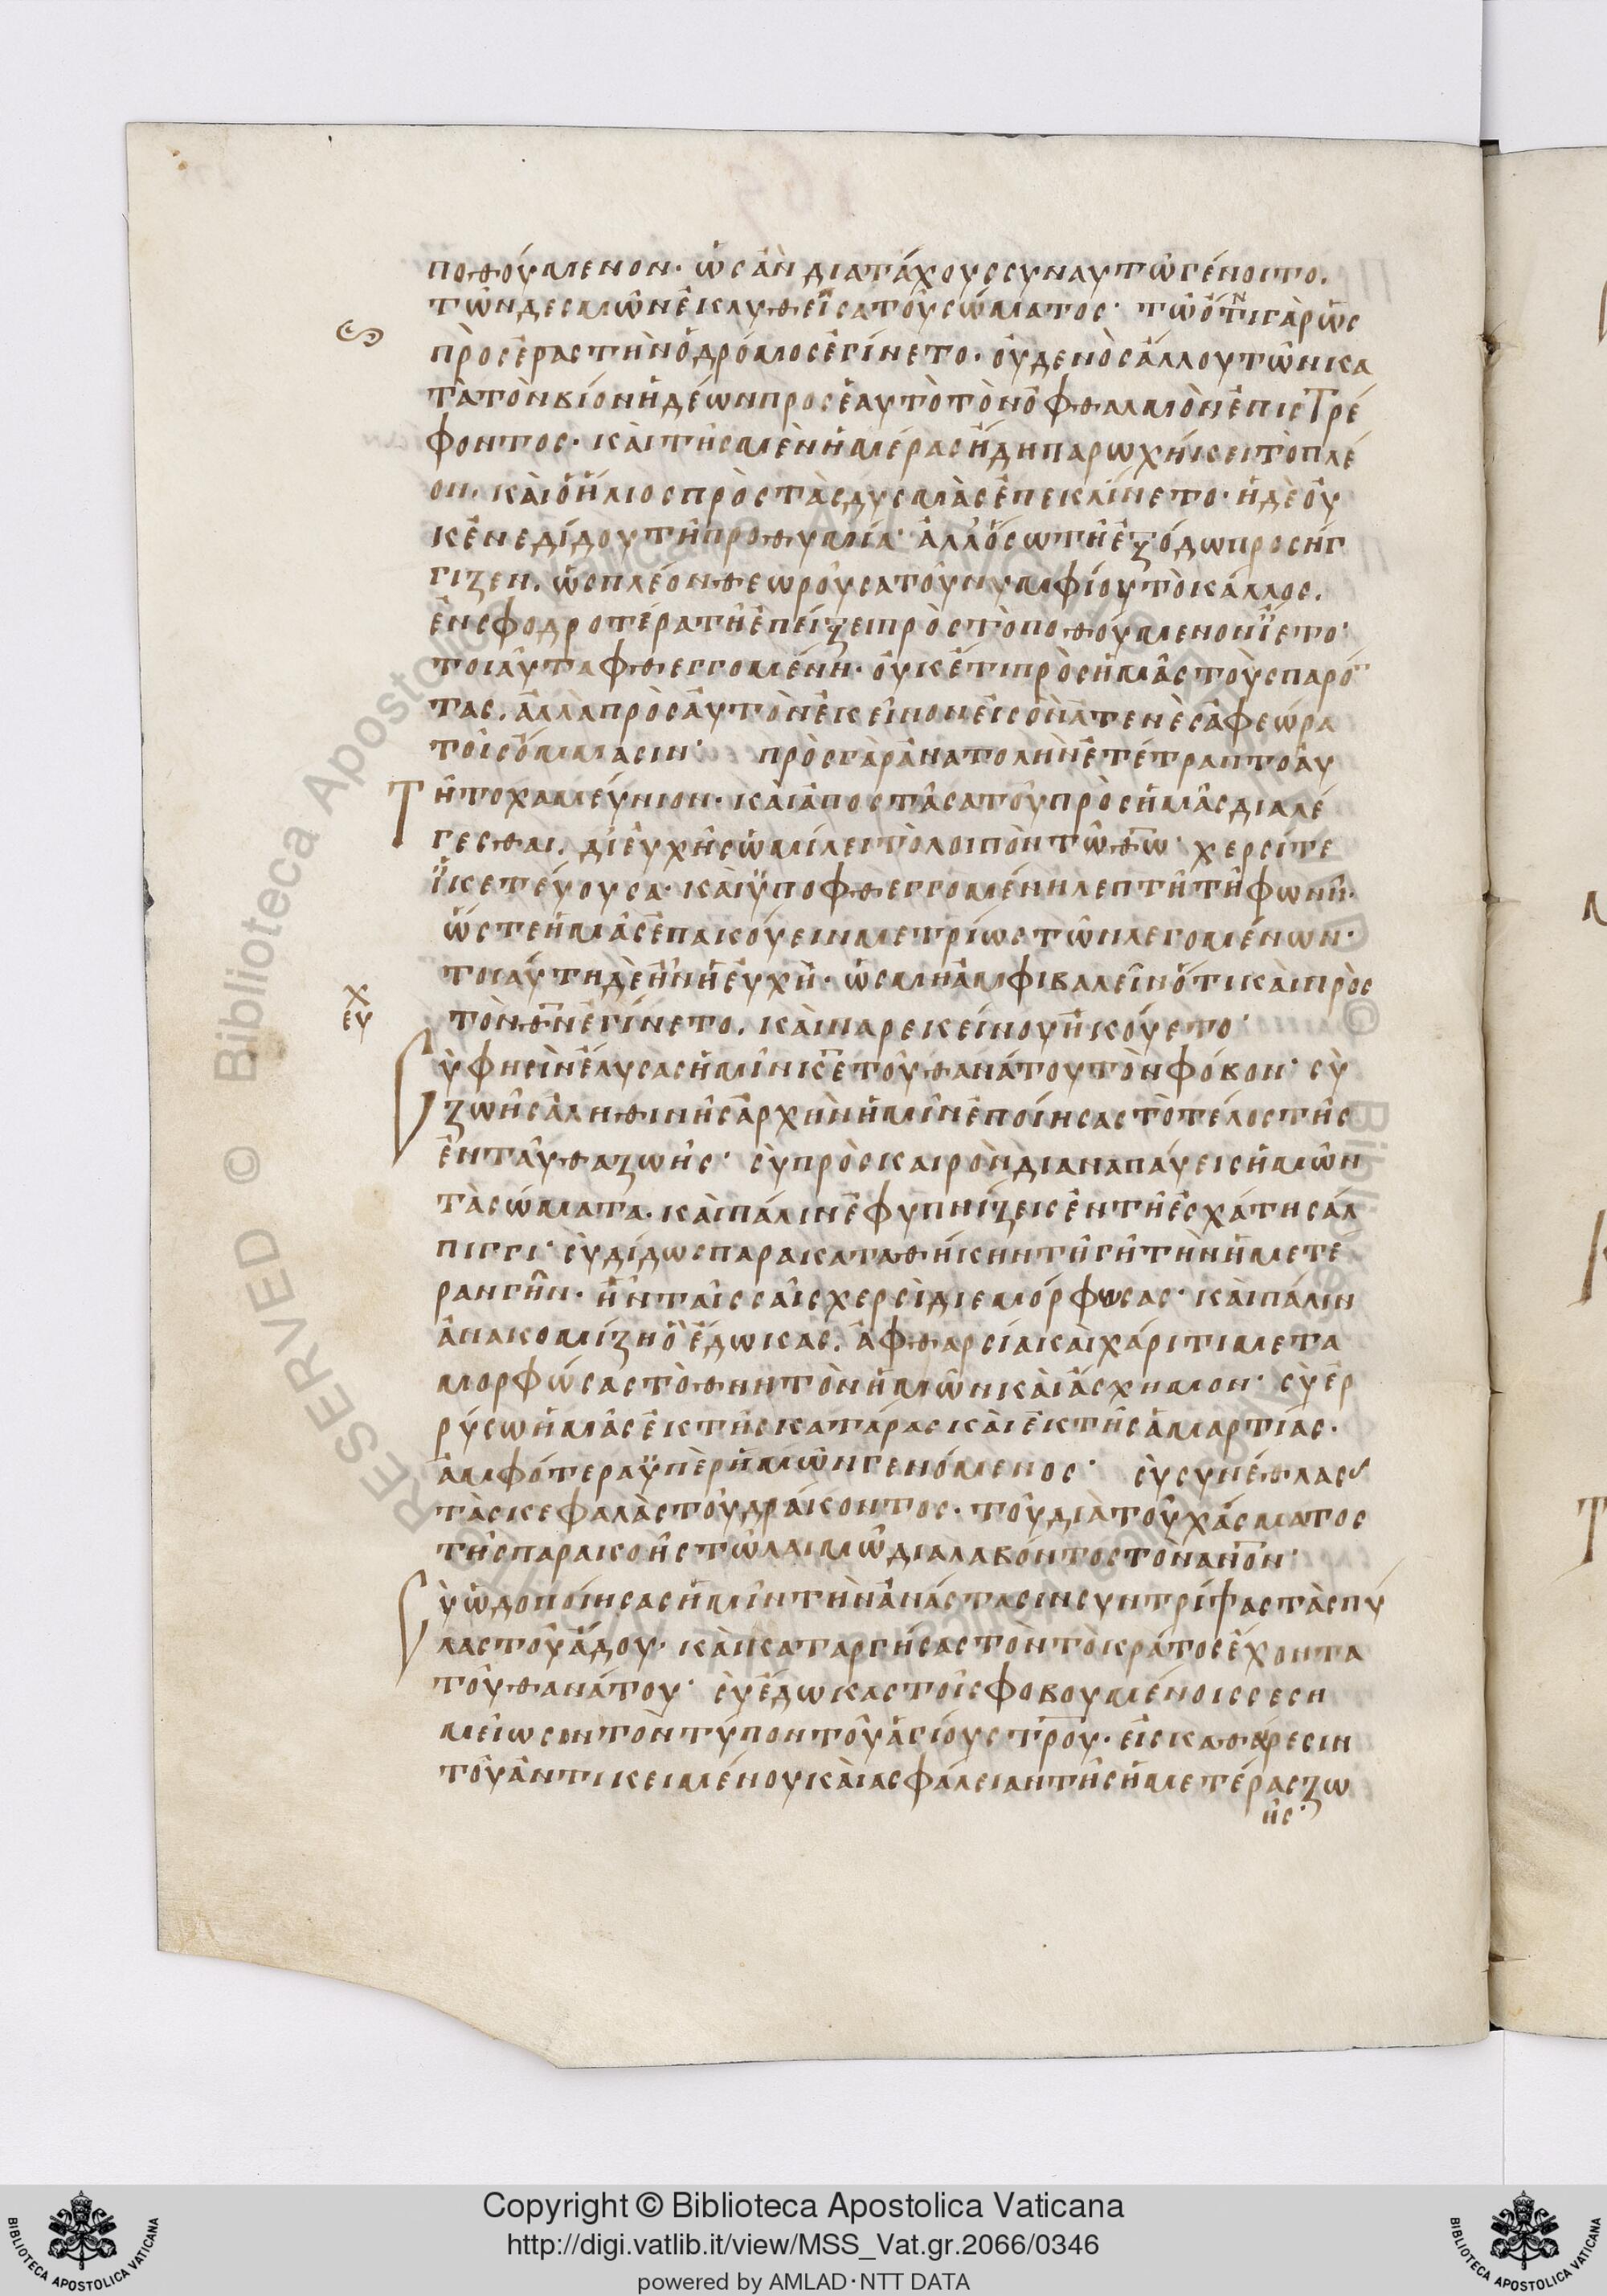 ποθούμενον· ὡς ἂν διὰ τάχους σὺν αὐτῷ γένοιτο.
τῶν δεσμῶν ἐκλυθεῖσα τοῦ σώματος· τῷ ὄντι γὰρ ὡς
πρὸς ἐραστὴν ὁ δρόμος ἐγίνετο· οὐδενὸς ἄλλου τῶν κα
τὰ τὸν βίον ἡδέων πρὸς ἑαυτὸ τὸν ὀφθαλμὸν ἐπιστρέ
φοντος· καὶ τῆς μὲν ἡμέρας ἤδη παρωχήκει τὸ πλέ
ον. καὶ ὁ ἥλιος πρὸς τὰς δυσμὰς ἐπεκλίνετο· ἡ δὲ οὐ
κ ἐνεδίδου τῇ προθυμίᾳ· ἀλλ' ὅσω τῇ ἐξόδω προσήγ
γιζεν. ὡς πλέον θεωροῦσα τοῦ νυμφίου τὸ κάλλος.
ἐν σφοδροτέρα τῇ ἐπείξει πρὸς τὸ ποθούμενον ἵετο·
τοιαῦτα φθεγγομένη· οὐκέτι πρὸς ἡμᾶς τοὺς παρό
τας. ἀλλὰ πρὸς αὐτὸν ἐκεῖνον εἰς ὃν ἀτενὲς ἀφεώρα
τοῖς ὄμμασιν· πρὸς γὰρ ἀνατολὴν ἐτέτραπτο αὐ
τῆ τὸ χαμεύνιον· καὶ ἀποστᾶσα τοῦ πρὸς ἡμᾶς διαλέ
γεσθαι. δι' εὐχῆς ὡμίλει τὸ λοιπὸν τῷ θω· χερσί τε
ἱκετεύουσα· καὶ ὑποφθεγγομένη λεπτῇ τῇ φωνῇ·
ὥστε ἡμᾶς ἐπακούειν μετρίως τῶν λεγομένων·
τοιαύτη δὲ ἦν ἡ εὐχή· ὡς μὴ ἀμφιβαλεῖν ὅτι καὶ πρὸς
ευχ
τὸν θν ἐγίνετο. καὶ παρ' ἐκείνου ἠκούετο·
Σὺ φησὶν ἔλυσας ἡμῖν κε τοῦ θανάτου τὸν φόβον· σὺ
ζωῆς ἀληθινῆς ἀρχὴν ἡμῖν ἐποίησας τὸ τέλος τῆς
ἐνταῦθα ζωῆς· σὺ πρὸς καιρὸν διαναπαύεις ἡμῶν
τὰ σώματα· καὶ πάλιν ἐφυπνίζεις ἐν τῇ ἐσχάτη σάλ
πιγγι· σὺ δίδως παρακαταθήκην τῇ γῇ τὴν ἡμετέ
ραν γῆν· ἣν ταῖς σαῖς χερσὶ διεμόρφωσας· καὶ πάλιν
ἀνακομίζη ὃ ἔδωκας. ἀφθαρσία καὶ χάριτι μετα
μορφώσας τὸ θνητὸν ἡμῶν καὶ ἄσχημον· σὺ ἐρ
ρύσω ἡμᾶς ἐκ τῆς κατάρας καὶ ἐκ τῆς ἁμαρτίας.
ἀμφότερα ὑπὲρ ἡμῶν γενόμενος· σὺ συνέθλασας
τὰς κεφαλὰς τοῦ δράκοντος· τοῦ διὰ τοῦ χάσματος
τῆς παρακοῆς τῷ λαιμῷ διαλαβόντος τὸν ανον·
Σὺ ὡδοποίησας ἡμῖν τὴν ἀνάστασιν συντρίψας τὰς πύ
λας τοῦ ἅδου· καὶ καταργήσας τὸν τὸ κράτος ἔχοντα
τοῦ θανάτου· σὺ ἔδωκας τοῖς φοβουμένοις σε ση
μείωσιν τὸν τύπον τοῦ ἁγίου στρου· εἰς καθαίρεσιν
τοῦ ἀντικειμένου καὶ ἀσφάλειαν τῆς ἡμετέρας ζω
ῆς·
Copyright © Biblioteca Apostolica Vaticana
http://digi.vatlib.it/view/MSS_Vat.gr.2066/0346
powered by AMLAD·NTT DATA
BIBLIOTECA APOSTOLICA VATICANA
BIBLIOTECA APOSTOLICA VATICANA